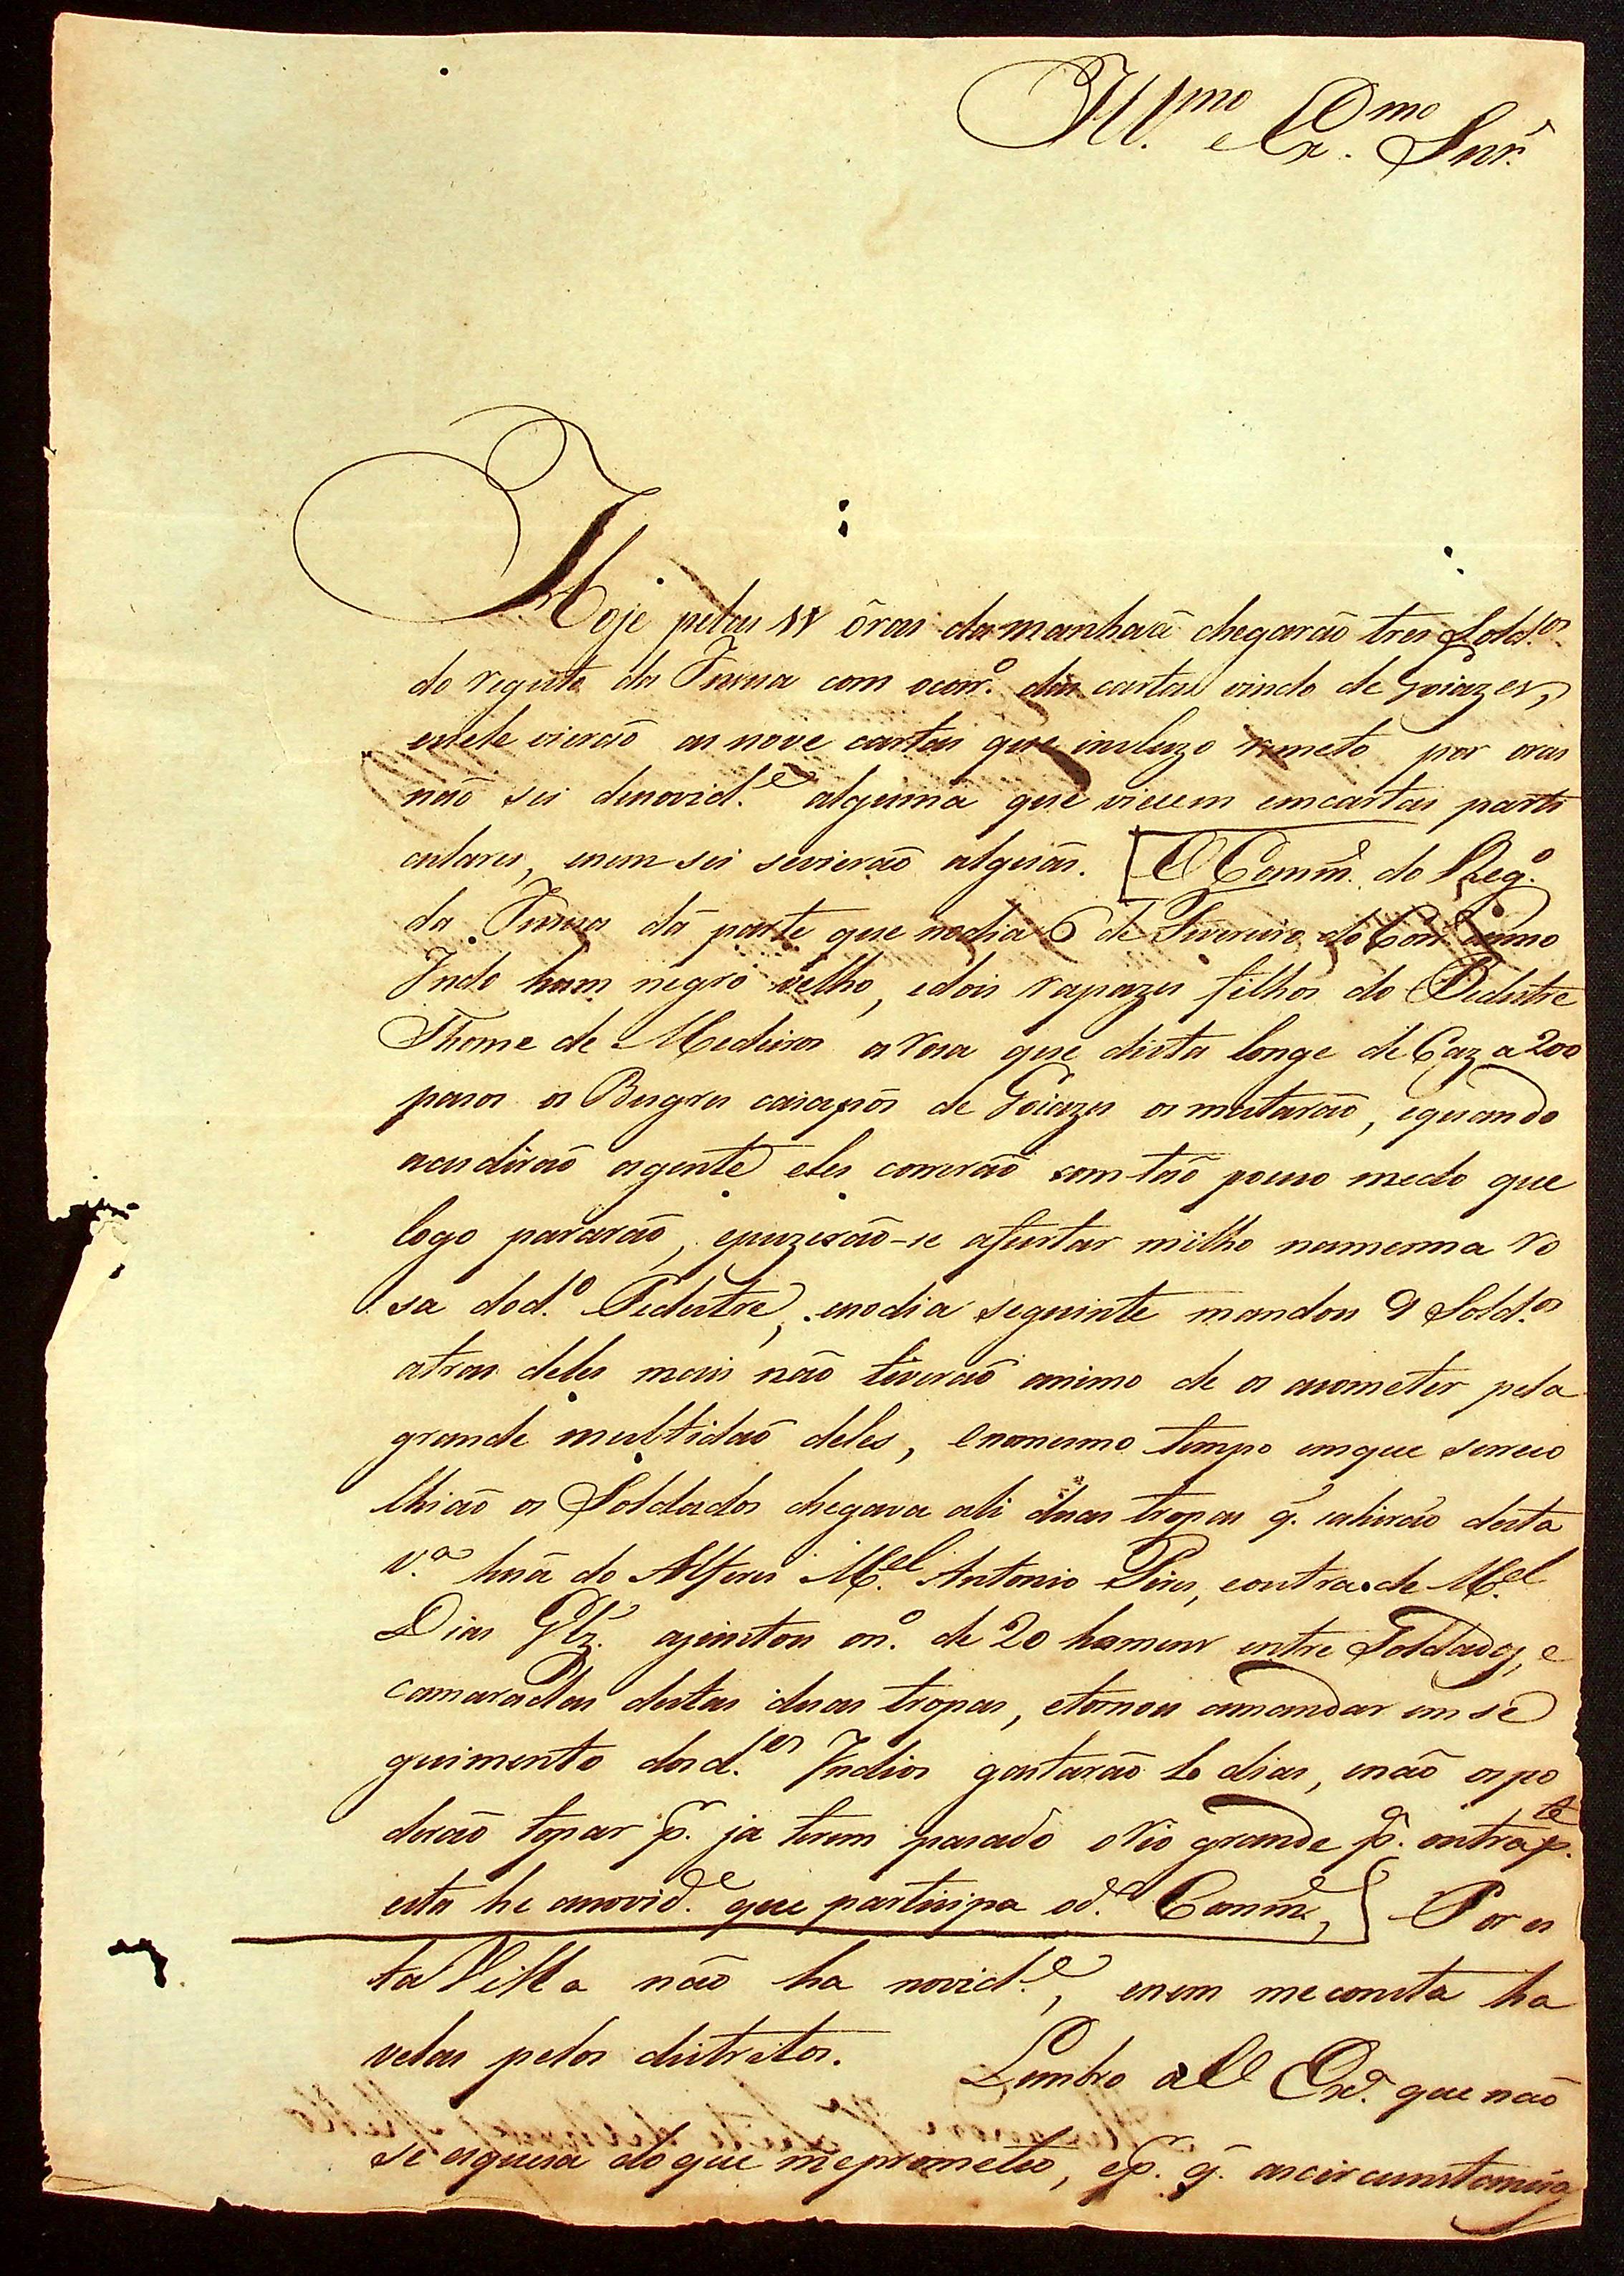 Ill.mo e Ex.mo Snr.
Hoje pelas 11 ôras damanhaã chegaraõ tres Sold.os
do registo da Insua com ocorr.o das cartas vindo de Goiazes,
enele vieraõ as nove cartas que incluzo remeto por oras
naõ sei denovid.e alguma que viecem emcartas parti
culares, enem sei sevieraõ alguãs. [O Comm.e do Reg.o
da Insua dá parte que nodia 6 de Fivereiro do Corr.e anno
Indo hum negro velho, edois rapazes filhos do Pedestre
Thome de Medeiros a rosa que dista longe de Caza 200
pasos os Bugres caiapós de Goiazes os mataraõ, equando
acudiraõ agente eles correraõ com taõ pouco medo que
logo pararaõ, epuzeraõ-se afurtar milho namesma ro
sa dod.o Pedestre, enodia seguinte mandou 9 Sold.os
atras deles mais não tiveraõ animo de os acometer pela
grande multidaõ deles, enomesmo tempo emque serreco
lhiaõ os Soldados chegava ali duas tropas q. sahiraõ desta
V.a huã do Alferes M.el Antonio Pires, eoutra de M.el
Dias Glz. ajuntou on.o de 20 homens entre Soldados, e
camaradas destas duas tropas, etornou amandar em se
guimento dosd.os Indios gastaraõ 6 dias, enão ospo
deraõ topar p.r ja terem pasado oRio grande p.a outra p.te
esta he anovid.e que participa od.o Comm.e] Por es
ta Villa não ha novid.e, enem meconsta ha
velas pelos distritos. Lembro a V Ex.a que naõ
se esquesa doque meprometeo, ep.r q. ascircunstancias